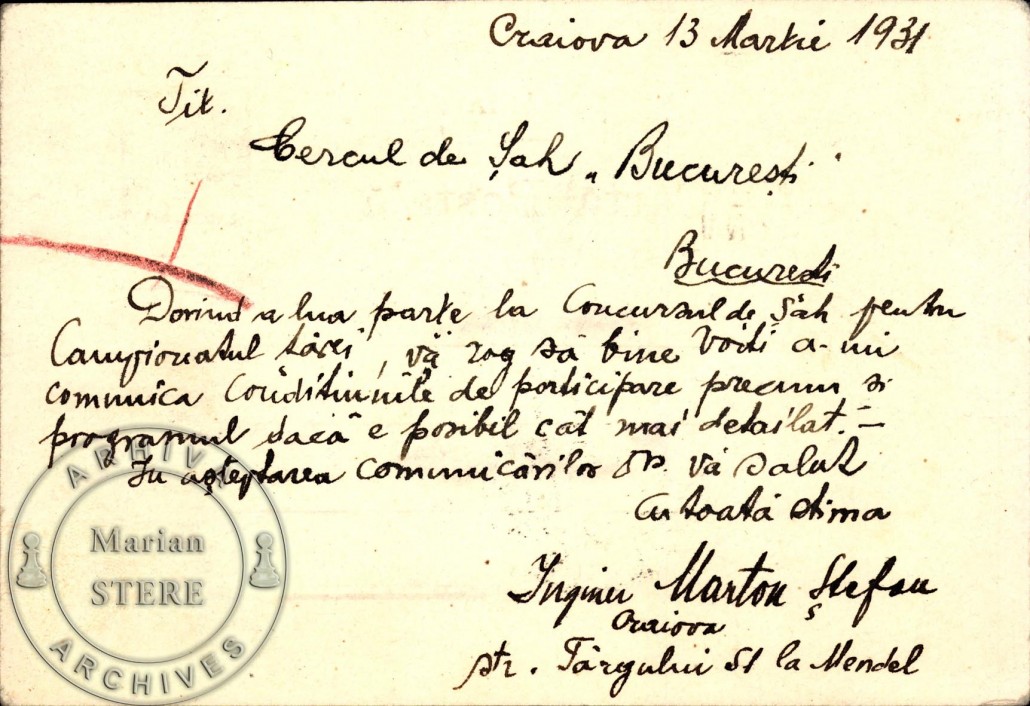 Craiova 13 Martie 1931
Tit.
Cercul de Șah „București"
București
Dorind a lua parte la Concursul de Șah pentru
Campionatul țărei, vă rog să bine voiti a-mi
comunica Conditiunile de participare precum si
programul dacă e posibil cât mai detailat.—
In așteptarea comunicărilor Dv. vă salut
cu toată stima
Inginer Marton Ștefan
Craiova
str. Târgului 51 la Mendel
ARHIVA
Marian
STERE
ARCHIVES